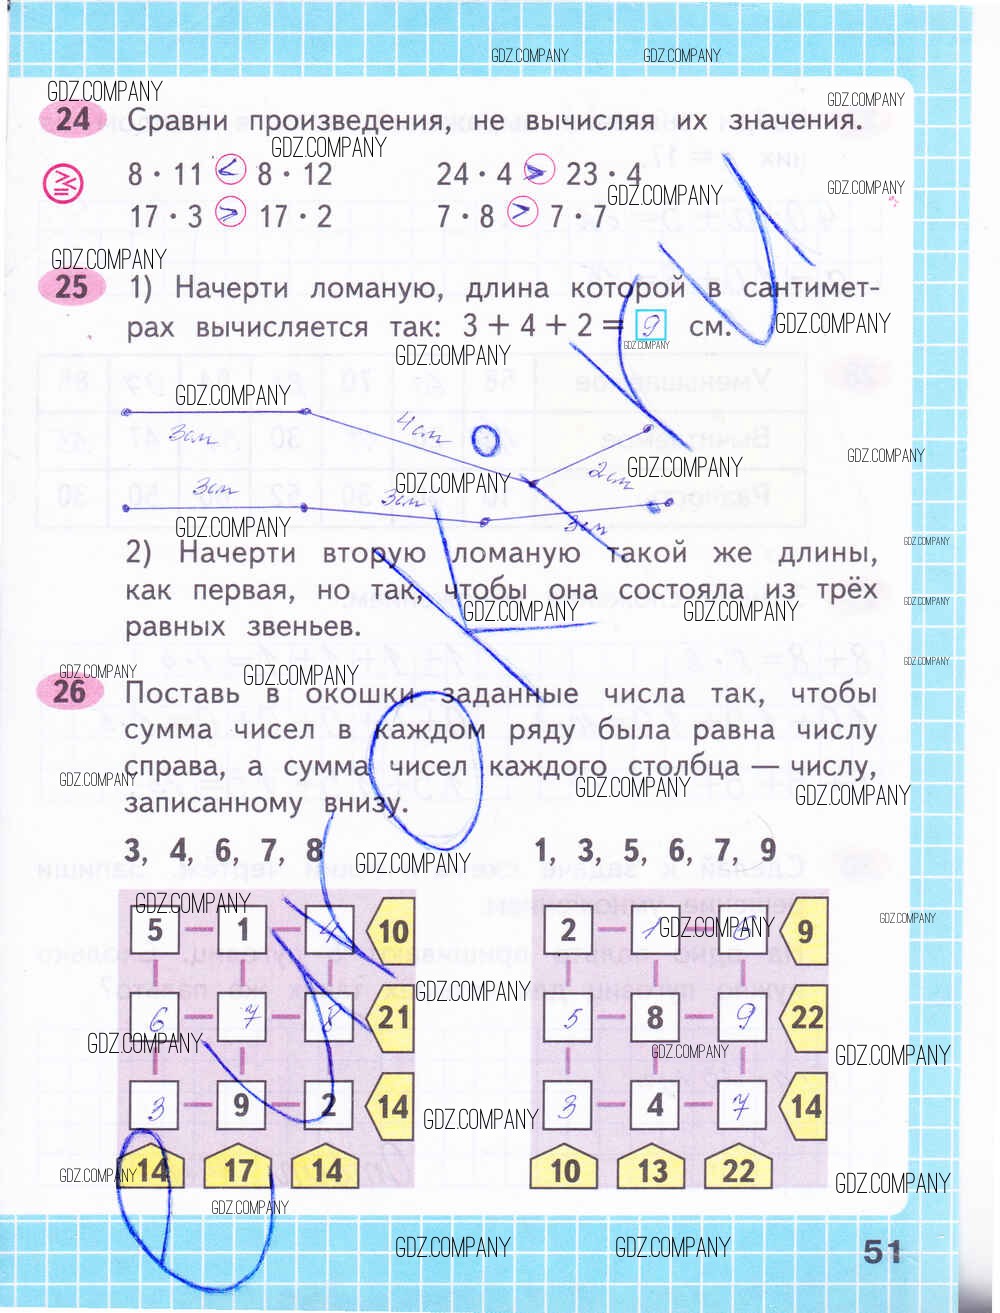 GDZ.COMPANY GDZ.COMPANY
GDZ.COMPANY GDZ.COMPANY
24 Сравни произведения, не вычисляя их значения.
GDZ.COMPANY
8 · 11 < 8 · 12 24 · 4 > 23 · 4
GDZ.COMPANY GDZ.COMPANY
17 · 3 > 17 · 2 7 · 8 > 7 · 7
GDZ.COMPANY
25 1) Начерти ломаную, длина которой в сантимет-
рах вычисляется так: 3 + 4 + 2 = 9 см.
GDZ.COMPANY
GDZ.COMPANY GDZ.COMPANY
GDZ.COMPANY
3см 4см
GDZ.COMPANY
GDZ.COMPANY GDZ.COMPANY
2см
3см 3см 3см
GDZ.COMPANY
GDZ.COMPANY
2) Начерти вторую ломаную такой же длины,
как первая, но так, чтобы она состояла из трёх
GDZ.COMPANY GDZ.COMPANY GDZ.COMPANY
равных звеньев.
GDZ.COMPANY GDZ.COMPANY GDZ.COMPANY
26 Поставь в окошки заданные числа так, чтобы
сумма чисел в каждом ряду была равна числу
справа, а сумма чисел каждого столбца — числу,
GDZ.COMPANY GDZ.COMPANY GDZ.COMPANY
записанному внизу.
3, 4, 6, 7, 8 1, 3, 5, 6, 7, 9
GDZ.COMPANY
GDZ.COMPANY GDZ.COMPANY GDZ.COMPANY
5 1 4 10 2 1 6 9
GDZ.COMPANY
6 7 8 21 5 8 9 22
GDZ.COMPANY GDZ.COMPANY GDZ.COMPANY
3 9 2 14 3 4 7 14
GDZ.COMPANY
14 17 14 10 13 22
GDZ.COMPANY GDZ.COMPANY
GDZ.COMPANY
GDZ.COMPANY GDZ.COMPANY
51